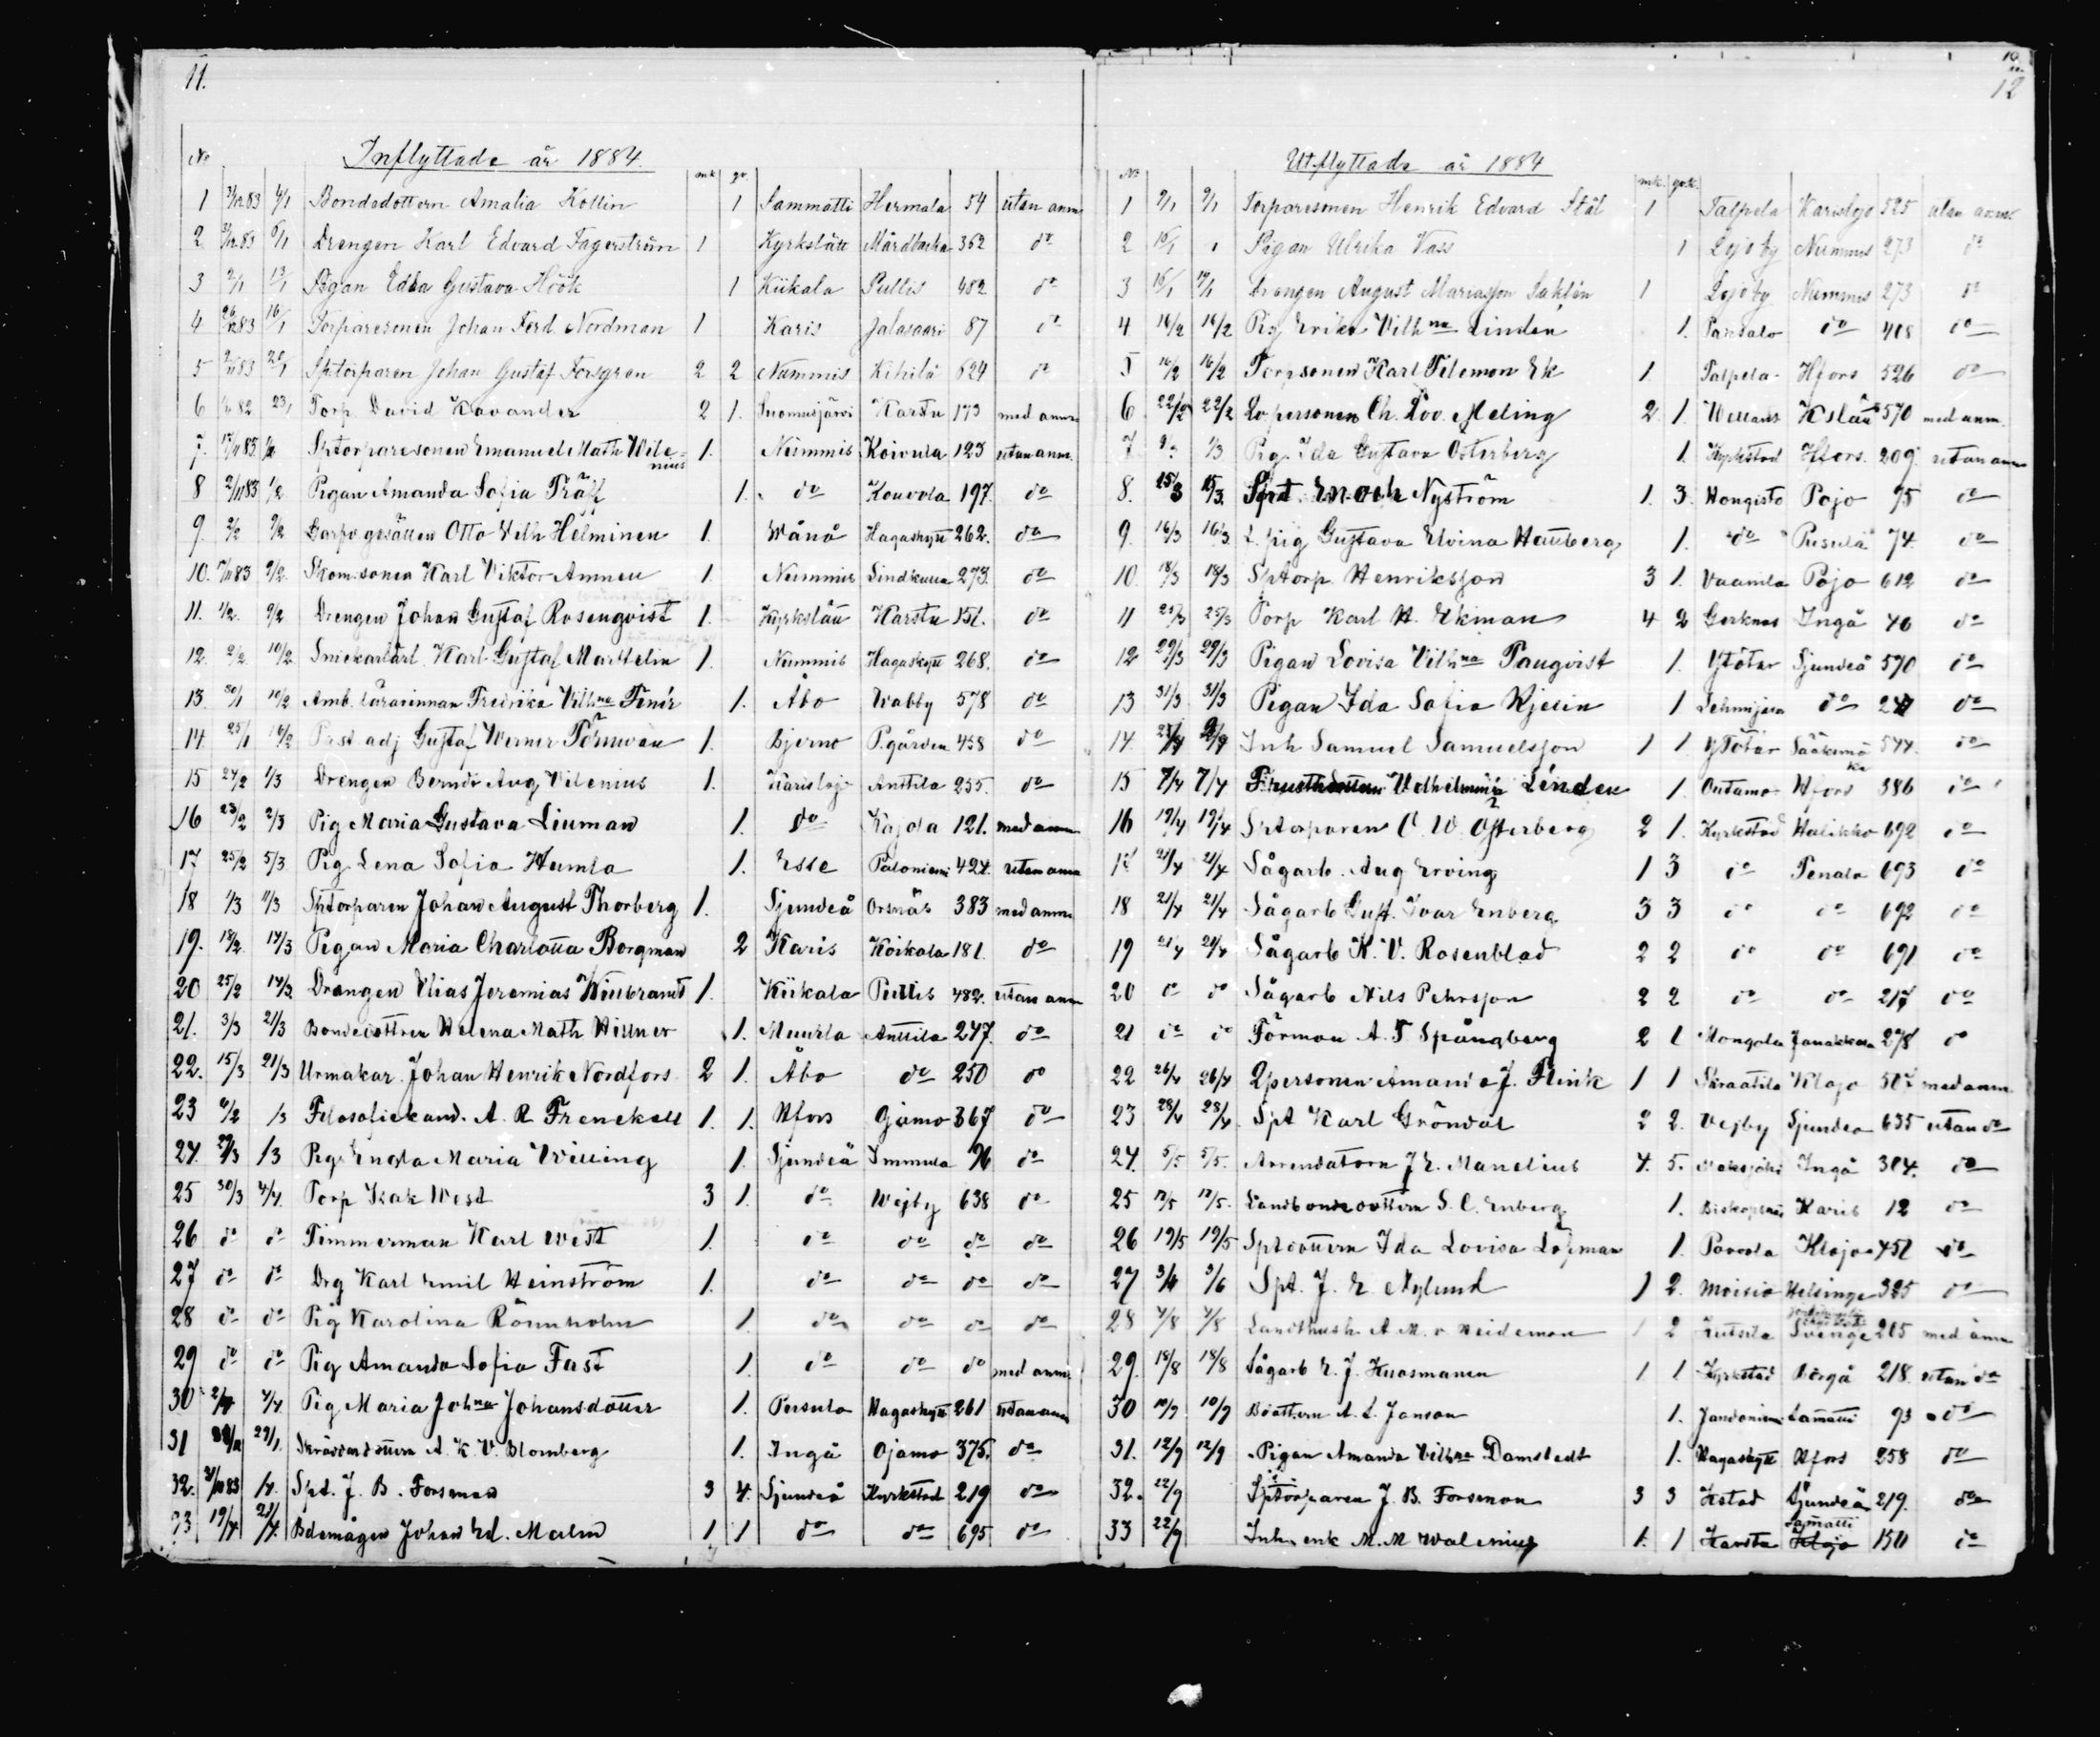 11.
Inflyttade år 1884.
No mk. qv.
1 31/12 83 4/1 Bondedottern Amalia Kollin 1 Sammatti Hermala 54 utan anm
2 31/12 83 6/1 Drengen Karl Edvard Fagerström 1 Kyrkslätt Mårdbacka 362 do
3 2/1 13/1 Pigan Edla Gustava Höök 1 Kiikala Pullis 482 do
4 26/12 83 16/1 Torparesonen Johan Ferd Nordman 1 Karis Jalasaari 87 do
5 83 20/1 Sptorparen Johan Gustaf Forsgren 2 2 Nummis Kihilä 624 do
6 82 23/1 Torp David Kavander 2 1. Suomusjärvi Karstu 173 med anm
7. 17/11 83 1/2 Sptorparesonen Emanuel Math Wilenius 1. Nummis Koivula 123 utan anm.
8 2/11 83 1/2 Pigan Amanda Sofia Träff 1. do Kouvola 197. do
9. 2/2 9/2 Otto Vilh Helminen 1. Wånå Hagaskytt 262. do
10. 83 9/2. Karl Viktor Amneu 1. Nummis Lindkulla 273. do
11. 1/2. 9/2 Drengen Johan Gustaf Rosenqvist 1. Kyrkslätt Karstu 151. do
12. 2/2 10/2 Snickarlärl. Karl Gustaf Martelin 1. Nummis Hagaskytt 268. do
13. 30/1 10/2 Amb. lärarinnan Fredrika Vilhna Tenér 1. Åbo Wabby 578 do
14. 25/1 16/2 Past adj Gustaf Werner Törnwän 1. Bjerno P.gården 458 do
15 24/2 1/3 Drengen Berndt Aug, Vilenius 1. Karislojo Anttila 255. do
16 23/2 2/3 Pig Maria Gustava Liuman 1. do Kajola 121. med anm
17 25/2 5/3 Pig. Lena Sofia Humla 1. Esse Paloniemi 424. utan anm
18 1/3 11/3 Sptorparen Johan August Thorberg 1. Sjundeå Orsnäs 383 med anm
19. 18/2. 14/3 Pigan Maria Charlotta Borgman 2 Karis Koikala 181. do
20 25/2 14/3. Drengen Elias Jeremias Winbrandt 1. Kiikala Pullis 482. utan anm
21. 3/3 21/3 Bondedottren Helena Math Hillner 1. Muurla Anttila 247. do
22. 15/3 21/3 Urmakar. Johan Henrik Nordfors 2 1. Åbo do 250 do
23 6/2 /3 Filosofiekand. A. R. Frenckell 1. 1. Hfors Ojamo 367 do
24. 29/3 /3 Pig. Engla Maria Willing 1. Sjundeå Immula 96 do
25 30/3 4/4. Torp Isak West 3 1. do Wejby 638 do
26 do do Timmerman Karl West 1. do do do do
27 do do Drg Karl Emil Heinström 1. do do do do
28 do do Pig Karolina Rönnholm 1. do do do do
29 do do Pig Amanda Sofia Fast 1. do do do med anm.
30 2/4 4/4. Pig Maria Johna Johansdotter 1. Persula Hagaskytt 261 utan anm
31 29/1. Skräddardottern A. K. V. Blomberg 1. Ingå Ojamo 375. do
32. 83 /4. Spt. J. B. Forsman 3 4. Sjundeå Kyrkstad 219 do
33 19/4 21/4. Bdemågen Johan Ed. Malm 1 1 do do 695 do
12
Utflyttade år 1884
No mk. qvk.
1 2/1 2/1 Torparesonen Henrik Edvard Stål 1 Talpela Karislojo 525 utan anm
2 15/1 Pigan Ulrika Vass 1 Lojo by Nummis 273 do
3 15/1 19/1 Drengen August Mariasson Saklén 1 Lojo by Nummis 273 do
4 16/2 16/2 Pig Erika Vilhna Lindén 1. Paksalo do 408 do
5 16/2 16/2 Torpsonen Karl Filemon Ek 1. Talpela Hfors 526 do
6 22/2 22/2 Lopersonen Ch. Lov. Meling 2 1. Wellans Kslätt 570 med anm.
7 1/3 Pig. Ida Gustava Österberg 1. Kyrkstad Hfors. 209. utan anm
8. 15/3 15/3. Spt. Enoch Nyström 1. 3. Hongisto Pojo 95 do
9. 16/3 16/3. L. pig Gustava Elvina Hauberg 1. do Pusula 74. do
10. 18/3 18/3 Sptorp. Henriksson 3 1. Vaanila Pojo 612 do
11 25/3 25/3 Torp Karl H. Ekman 4 2 Gerknas Ingå 40 do
12 29/3 29/3 Pigan Lovisa Vilhna Pauqvist 1. Ytötar Sjundeå 590 do
13 31/3 31/3 Pigan Ida Sofia Kjelin 1 Lehmijärvi do do
14. Inh Samuel Samuelsson 1 1 Ytötar Sääksmä 544. do
15 7/4 7/4 Vilhelmina Linden 1. Outamo Hfors 386 do
16 19/4 19/4 Sptorparen C. W. Österberg 2 1. Kyrkstad Halikko 692 do
17 21/4 21/4 Sågarb. Aug Erving 1 3 do Tenala 693 do
18 21/4 21/4 Sågarb Gust. Ivar Enberg 3 3 do do 692 do
19 21/4 21/4 Sågarb K. V. Rosenblad 2 2 do do 691 do
20 do do Sågarb Nils Pehrsson 2 2 do do 217 do
21 do do Förman A. T Spångberg 2 1 Mongola Janakkala 278 do
22 26/4 26/4 Qpersonen Amanda J. Flink 1 1 Skraatila Klojo 507 med anm
23 28/4 28/4. Spt Karl Gröndal 2 2. Vejby Sjundea 635 utan do
24. 5/5 5/5. Arrendatorn J. E. Manelius 4. 5. Maksjoki Ingå 304. do
25 12/5 12/5. Landbondedottern S. C. Enberg 1. Biskopsnäs Karis 12 do
26 19/5 19/5 Sptdottern Ida Lovisa Löfman 1. Paavola Klojo 451 do
27 3/6 3/6 Spt. J. E. Nylund 1 2. Moisio Helsinge 325 do
28 4/8 4/8 A. M. v. Weidemon 1 2 Kutsila Sverige 215 med anm
29. 18/8 18/8 Sågarb E. J. Kuosmanen 1 1 Kyrkstad Borgå 218. utan do
30 10/9. 10/9 A. L. Janson 1. Jantoniemi Samatti 93 do
31. 12/9 12/9 Pigan Amanda Vilhna Damstedt 1. Hagaskytt Hfors 258 do
32. 22/9 Sptorparen J. B. Forsman 3 3 Kstad Sjundeå 219. do
33 22/9 Inh. enk M. M Walenius 1. 1 Karsta Samatti Klojo 150 do